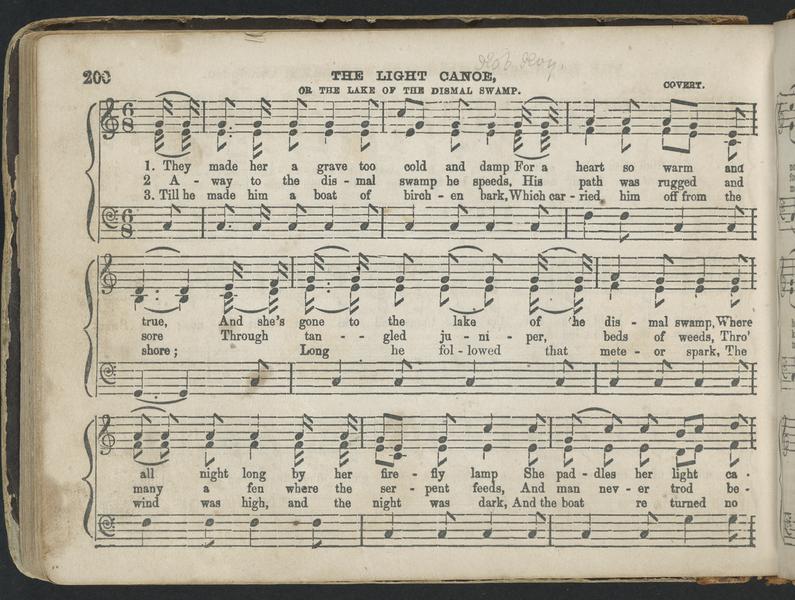 200
Rob Roy.
THE LIGHT CANOE,
OR THE LAKE OF THE DISMAL SWAMP.
COVERT.
6
8
1. They made her a grave too cold and damp For a heart so warm and
2 A - way to the dis - mal swamp he speeds, His path was rugged and
3. Till he made him a boat of birch - en bark, Which car - ried him off from the
6
8
true, And she's gone to the lake of 'he dis - mal swamp, Where
sore Through tan - - gled ju - ni - per, beds of weeds, Thro'
shore; Long he fol - lowed that mete - or spark, The
all night long by her fire - fly lamp She pad - dles her light ca -
many a fen where the ser - pent feeds, And man nev - er trod be -
wind was high, and the night was dark, And the boat re turned no